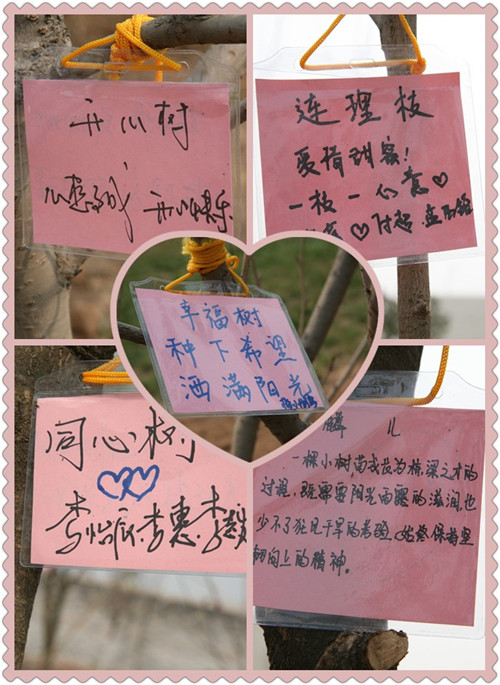 开心树
心想事成 开心快乐
连理枝
爱情甜蜜!
一枝一心意
幸福树
种下希望
洒满阳光
同心树
李怡辰 李惠 李
麟儿
一棵小树苗成长为栋梁之才的
过程,既需要阳光雨露的滋润,也
少不了狂风干旱的考验,始终保持坚
韧向上的精神。